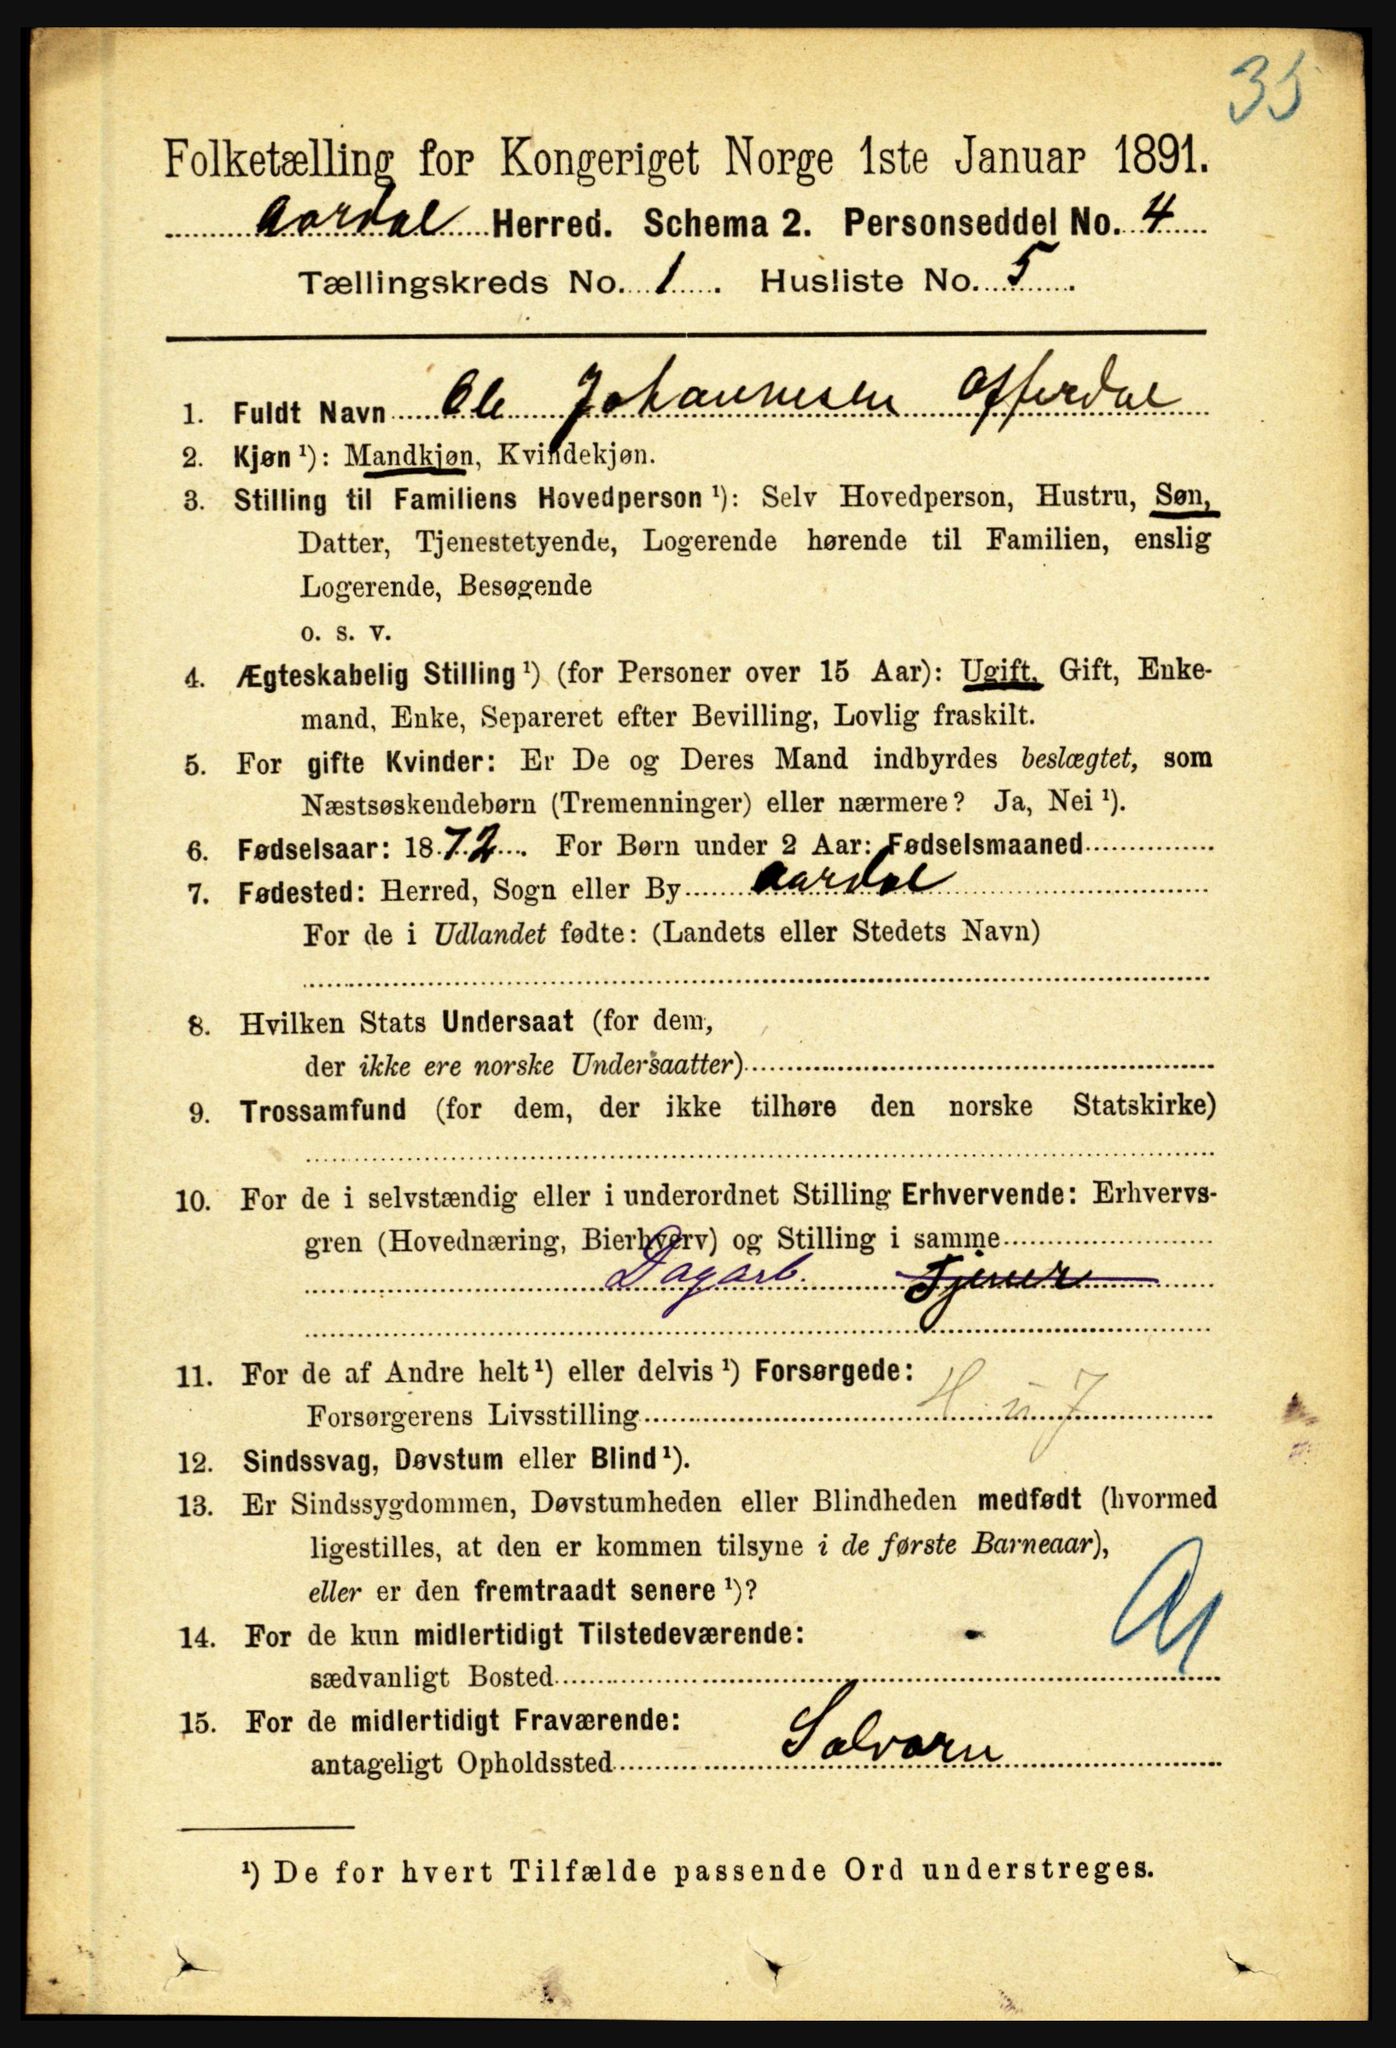 35
Folketælling for Kongeriget Norge 1ste Januar 1891.
Aardal Herred. Schema 2. Personseddel No. 4
Tællingskreds No. 1. Husliste No. 5.
1. Fuldt Navn Ole Johannesen Offerdal
2. Kjøn ¹): Mandkjøn, Kvindekjøn.
3. Stilling til Familiens Hovedperson ¹): Selv Hovedperson, Hustru, Søn,
Datter, Tjenestetyende, Logerende hørende til Familien, enslig
Logerende, Besøgende
o. s. v.
4. Ægteskabelig Stilling ¹) (for Personer over 15 Aar): Ugift, Gift, Enke-
mand, Enke, Separeret efter Bevilling, Lovlig fraskilt.
5. For gifte Kvinder: Er De og Deres Mand indbyrdes beslægtet, som
Næstsøskendebørn (Tremenninger) eller nærmere? Ja, Nei ¹).
6. Fødselsaar: 1872. For Børn under 2 Aar: Fødselsmaaned
7. Fødested: Herred, Sogn eller By Aardal
For de i Udlandet fødte: (Landets eller Stedets Navn)
8. Hvilken Stats Undersaat (for dem,
der ikke ere norske Undersaatter)
9. Trossamfund (for dem, der ikke tilhøre den norske Statskirke)
10. For de i selvstændig eller i underordnet Stilling Erhvervende: Erhvervs-
gren (Hovednæring, Bierhverv) og Stilling i samme
Dagarb. Tjener
11. For de af Andre helt ¹) eller delvis ¹) Forsørgede:
Forsørgerens Livsstilling
12. Sindssvag, Døvstum eller Blind ¹).
13. Er Sindssygdommen, Døvstumheden eller Blindheden medfødt (hvormed
ligestilles, at den er kommen tilsyne i de første Barneaar),
eller er den fremtraadt senere ¹)?
14. For de kun midlertidigt Tilstedeværende:
sædvanligt Bosted
15. For de midlertidigt Fraværende:
antageligt Opholdssted Solvorn
¹) De for hvert Tilfælde passende Ord understreges.